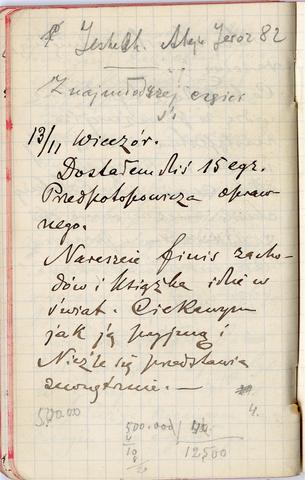 Aleje Jeroz 82
Z najmłodszej
13/11 Wieczór.
Dostałem dziś 15 egz.
Przedpotopowicza opraw-
nego.
Nareszcie finis zacho-
dów i książka idzie w
świat. Ciekawym
jak ją przyjmą i
Nieźle się przedstawia
zewnętrznie. —
4.
50000
500.000
12500